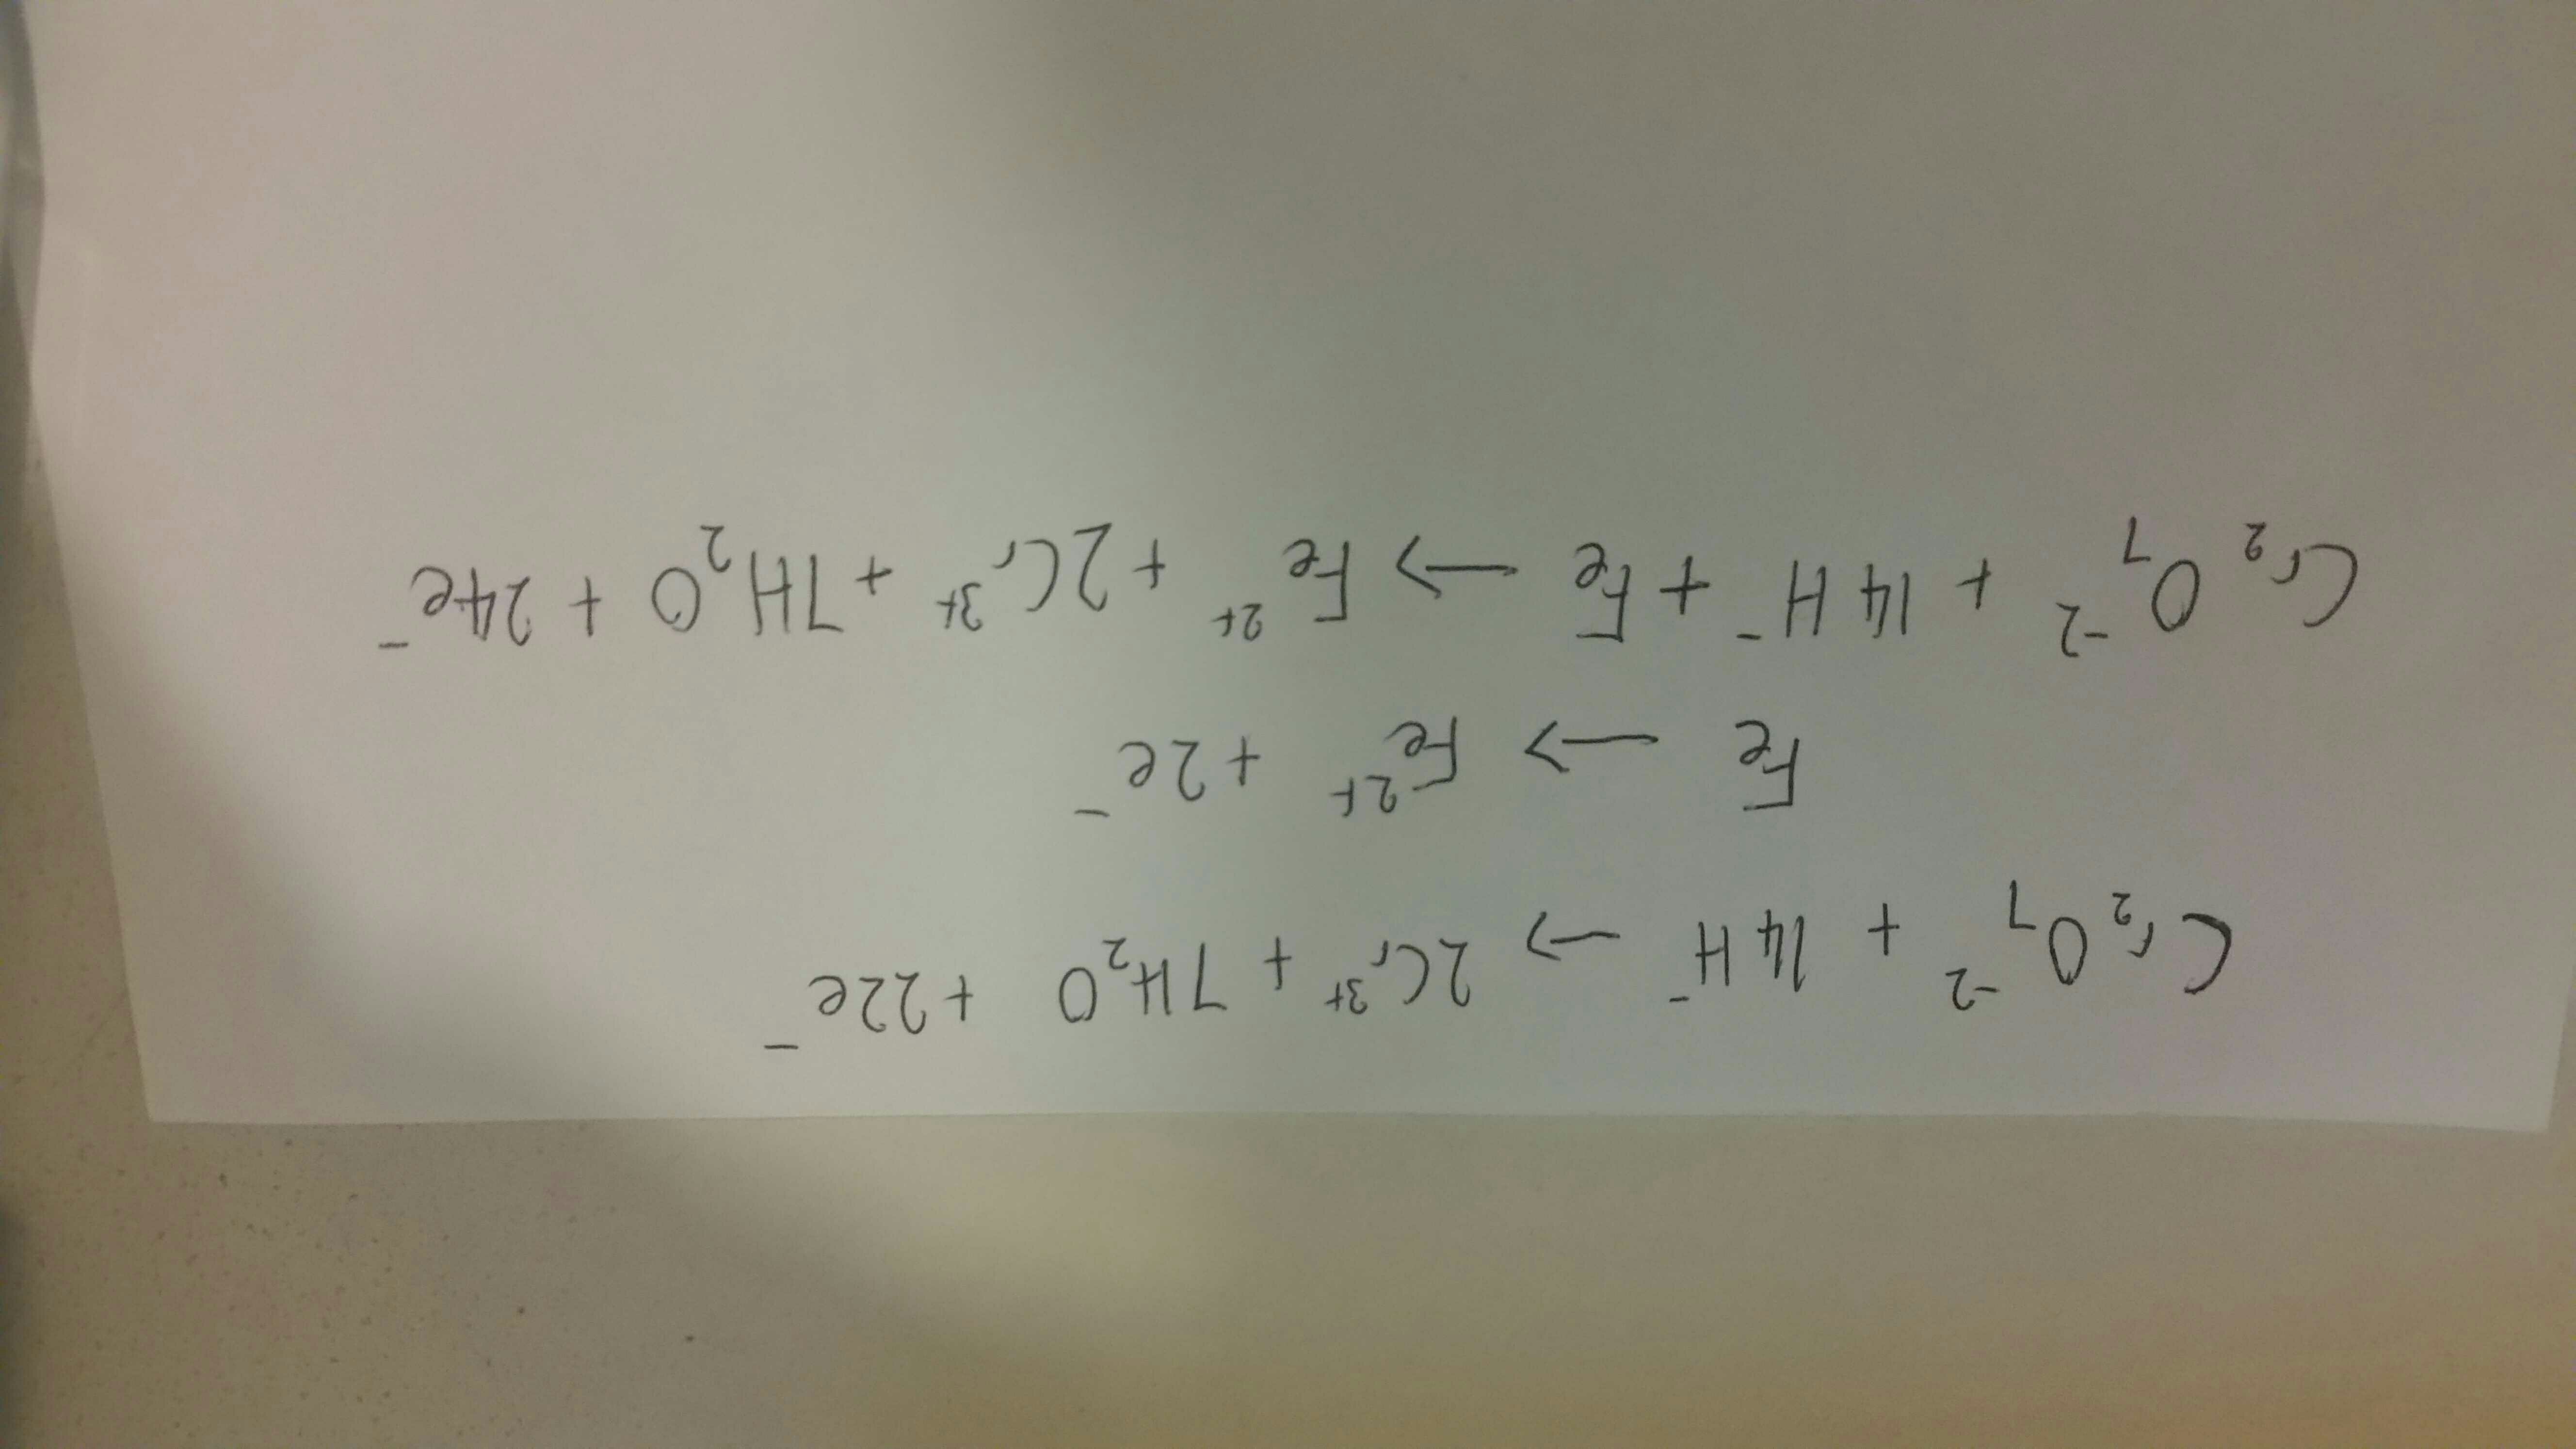 Cr₂O₇⁻² + 14H⁻ → 2Cr³⁺ + 7H₂O + 22e⁻
Fe → Fe²⁺ + 2e⁻
Cr₂O₇⁻² + 14H⁻ + Fe → Fe²⁺ + 2Cr³⁺ + 7H₂O + 24e⁻